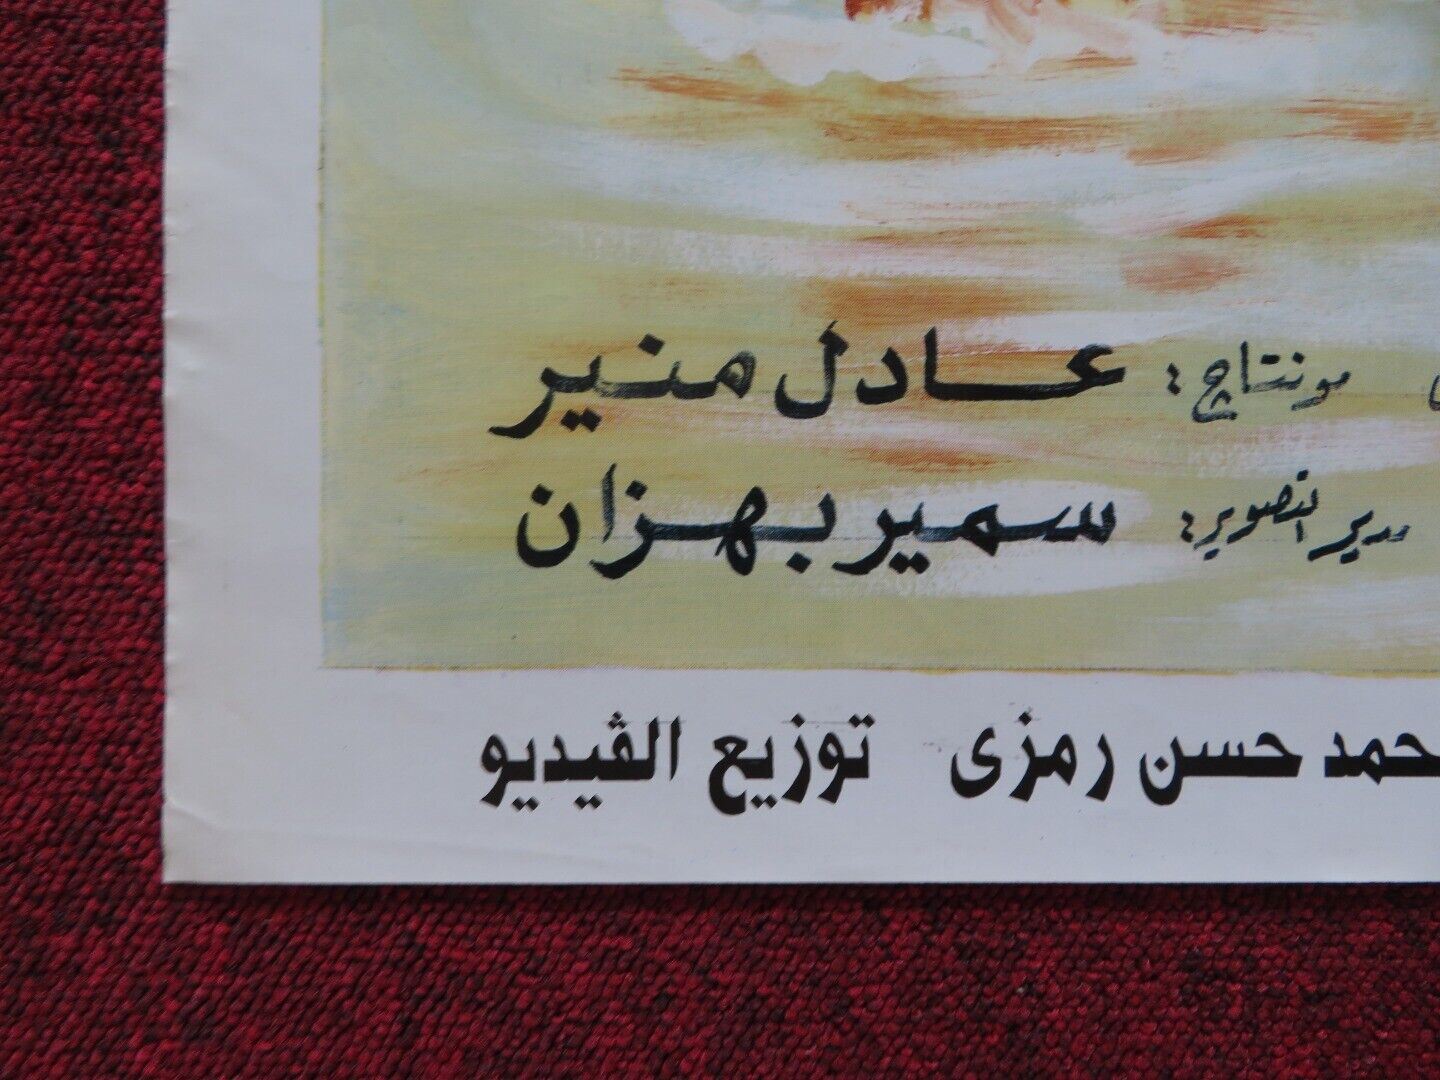 مونتاج: عادل منير
مدير التصوير: سمير بهزان
حمد حسن رمزى توزيع الڤيديو